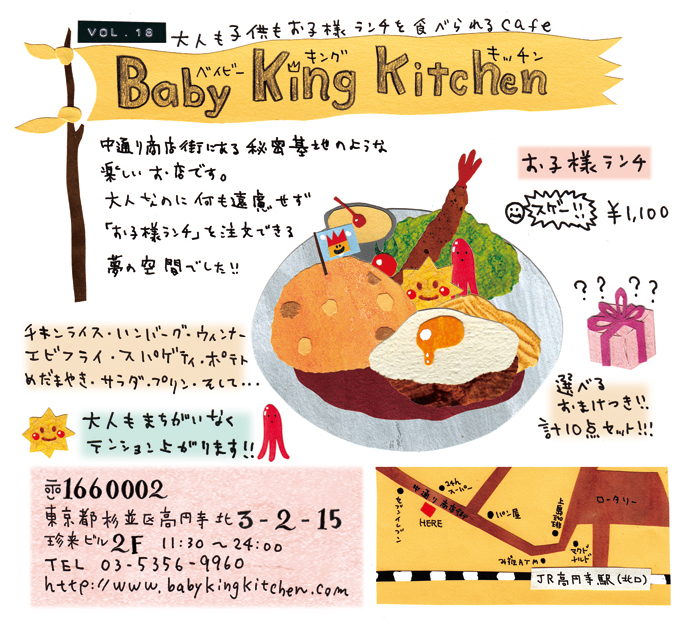 VOL.18
大人も子供もお子様ランチを食べられるcafe
ベイビー キング キッチン
Baby King Kitchen
中通り商店街にある秘密基地のような
楽しいお店です。
大人なのに何も遠慮せず
「お子様ランチ」を注文できる
夢の空間でした!!
お子様ランチ
スゲー!! ¥1,100
? ? ? ?
チキンライス・ハンバーグ・ウィンナー
エビフライ・スパゲティ・ポテト
めだまやき・サラダ・プリン・そして・・・
選べる
おまけつき!!
計10点セット!!!
大人もまちがいなく
テンション上がります!!
〠1660002
東京都杉並区高円寺北3-2-15
珍来ビル2F 11:30〜24:00
TEL 03-5356-9960
http://www.babykingkitchen.com
中通り商店街
24h
スーパー
セブンイレブン
HERE
パン屋
上島珈琲
ロータリー
マクド
ナルド
ATM
JR高円寺駅(北口)